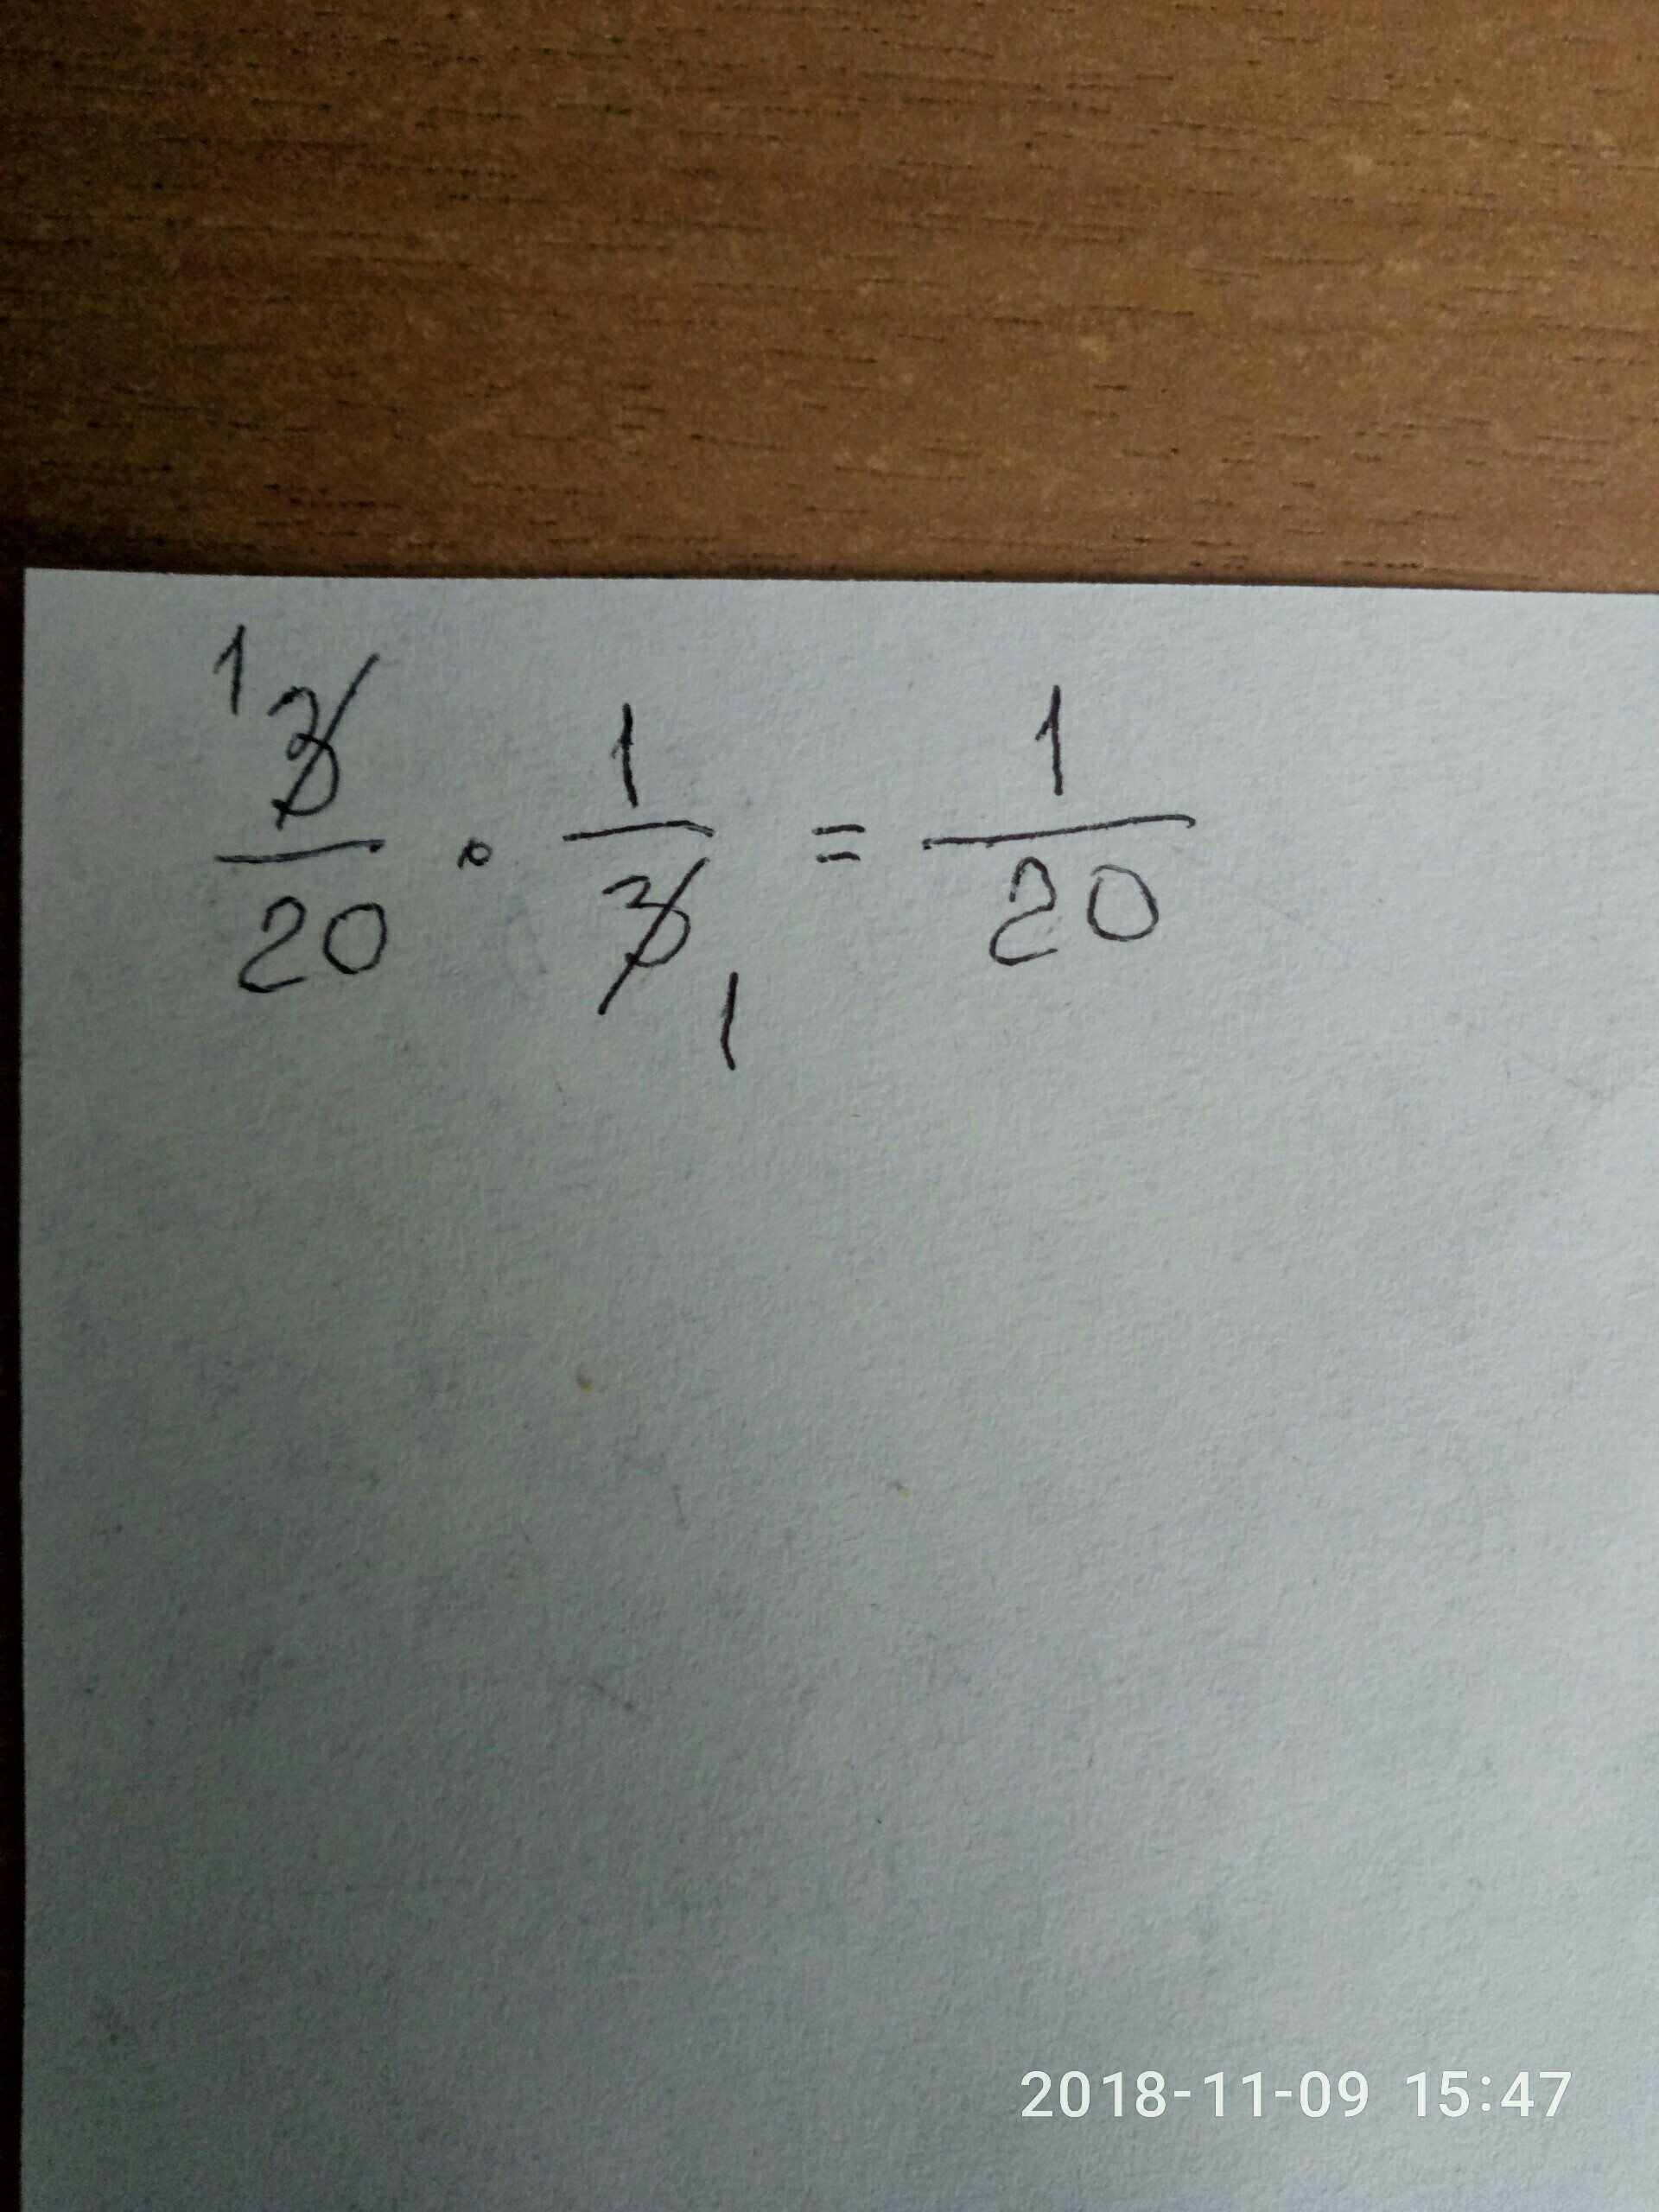 1 3/20 · 1/3 1 = 1/20
2018-11-09 15:47